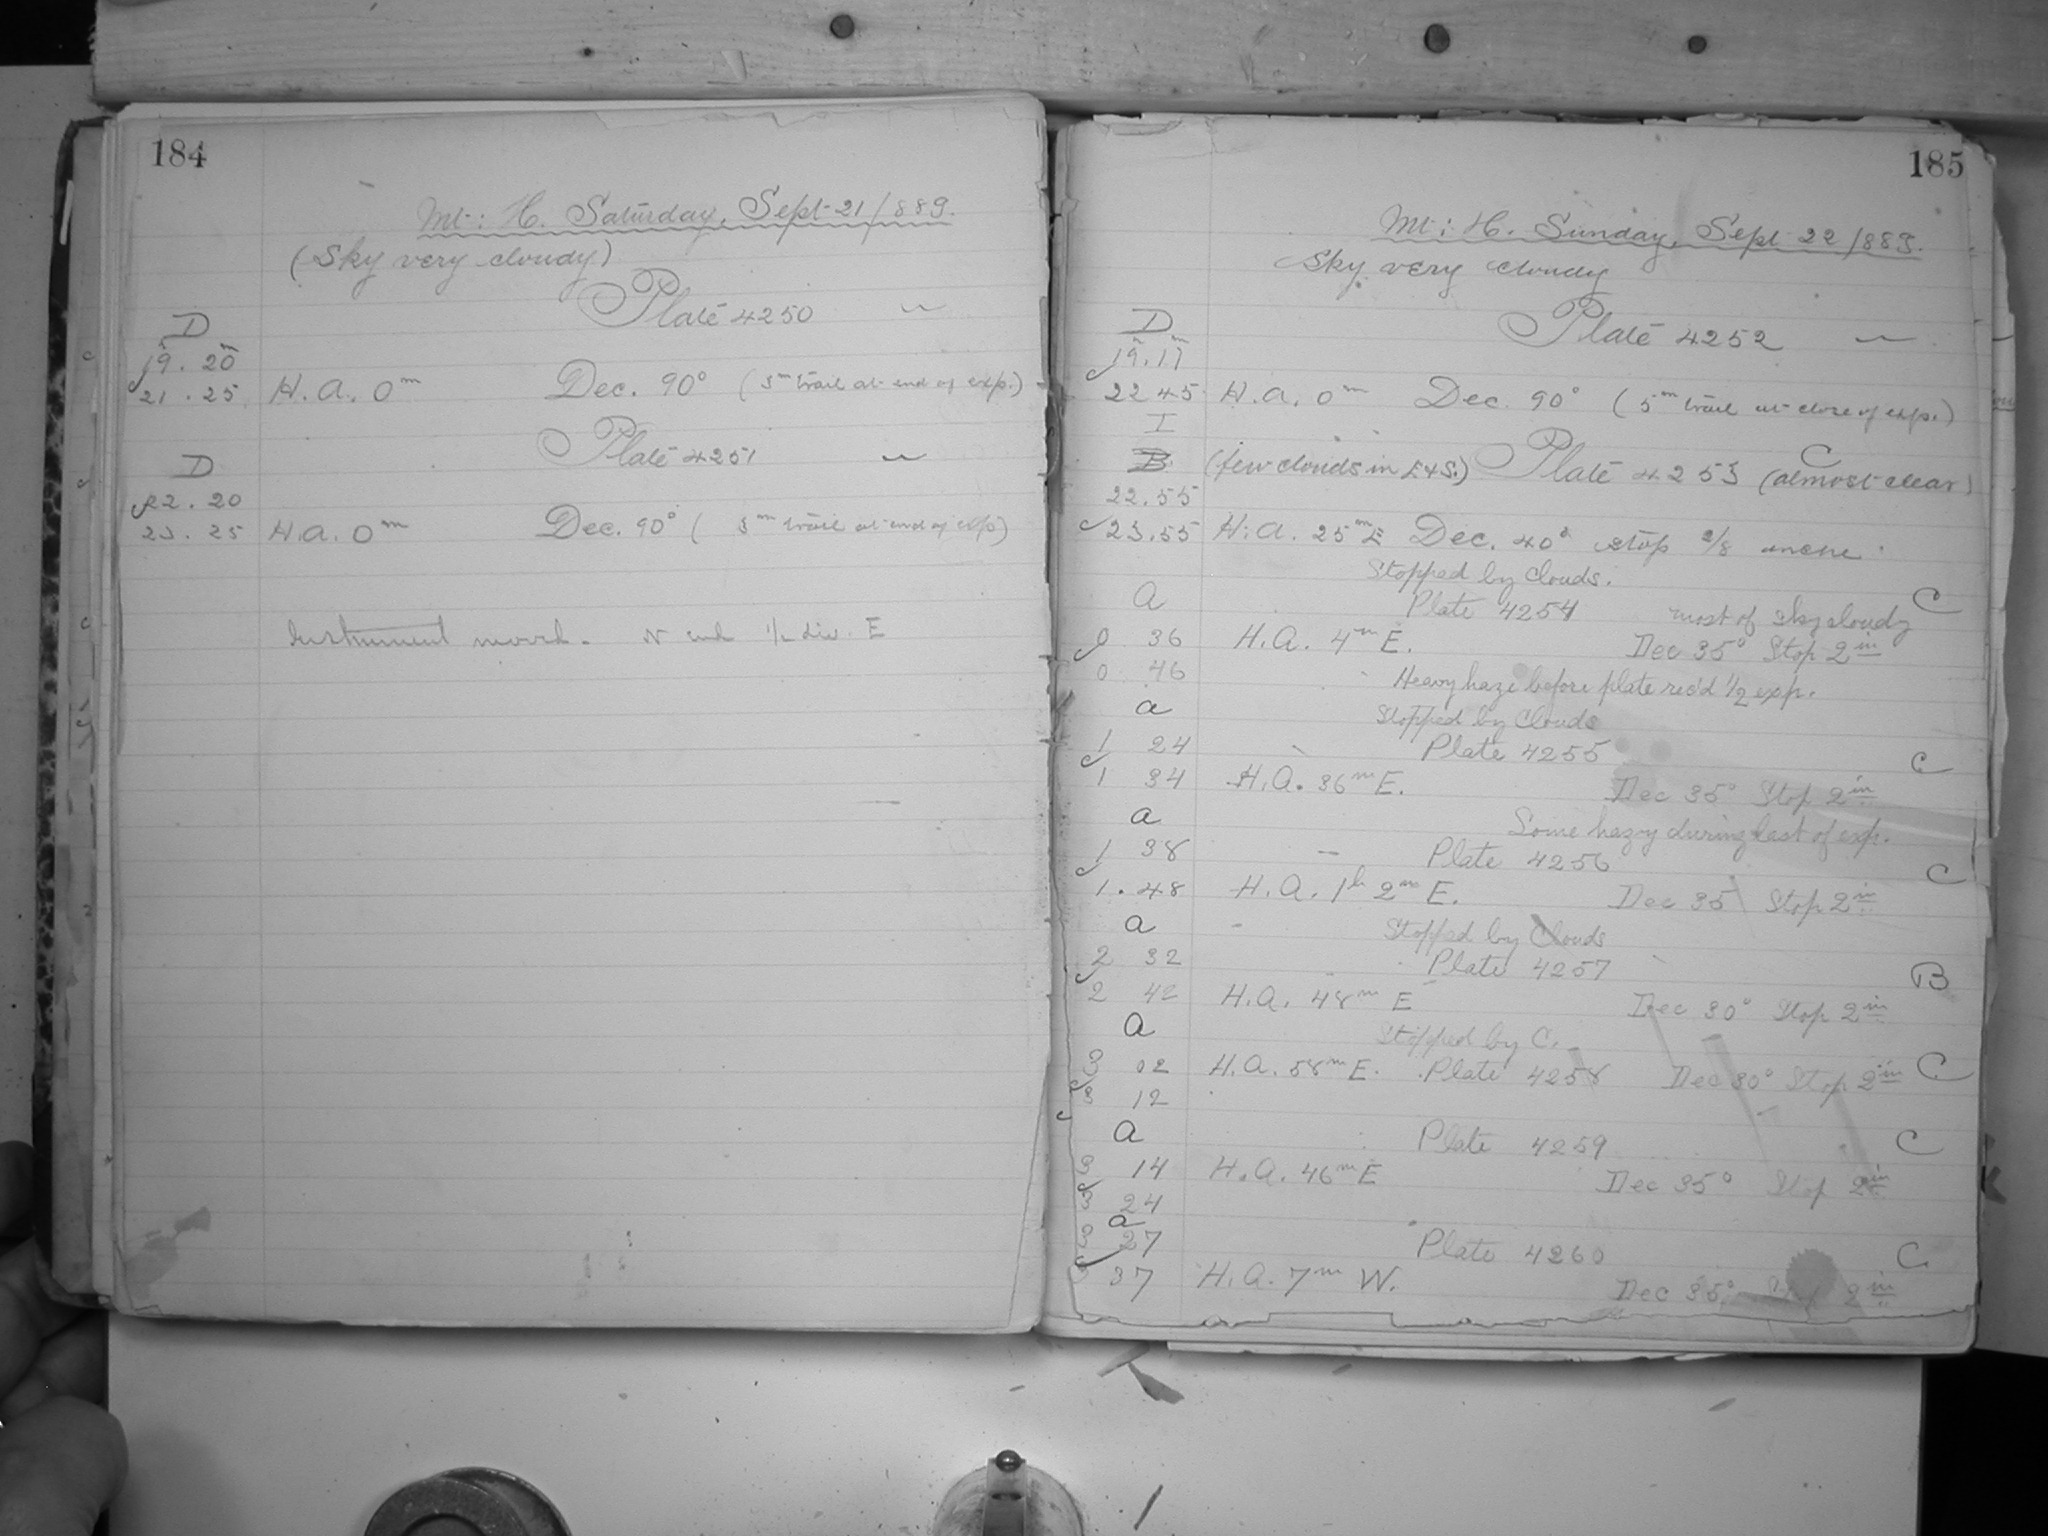 184
Mt: H. Saturday, Sept 21/889.
(Sky very cloudy)
Plate 4250
D
19h. 20m
21. 25 H.A. 0m Dec. 90° (5m trail at end of exp.)
Plate 4251
D
22. 20
23. 25 H.A. 0m Dec. 90° (5m trail at end of exp)
Instrument moved. N end 1/2 div. E
185
Mt: H. Sunday, Sept 22/889.
Sky very cloudy
D
Plate 4252
19h.17m
22 45 H.A. 0m Dec. 90° (5m trail at close of exp.)
I
B (few clouds in E & S.) Plate 4253 (almost clear) C
22.55
23.55 H.A. 25m E Dec. 40° stop 2/8
Stopped by Clouds.
a Plate 4254 most of sky cloudy C
0 36 H.A. 4m E. Dec 35° Stop 2in
0 46 Heavy haze before plate rec'd 1/2 exp.
a Stopped by Clouds
1 24 Plate 4255 C
1 34 H.A. 36m E. Dec 35° Stop 2in
a Some hazy during last of exp.
1 38 Plate 4256 C
1. 48 H.A. 1h 2m E. Dec 35 Stop 2in
a Stopped by Clouds
2 32 Plate 4257 B
2 42 H.A. 48m E Dec 30° Stop 2in
a Stopped by C.
3 02 H.A. 58m E. Plate 4258 Dec 30° Stop 2in C
3 12
a Plate 4259 C
3 14 H.A. 46m E Dec 35° Stop 2in
3 24
a
3 27 Plate 4260 C
3 37 H.A. 7m W. Dec 35° Stop 2in